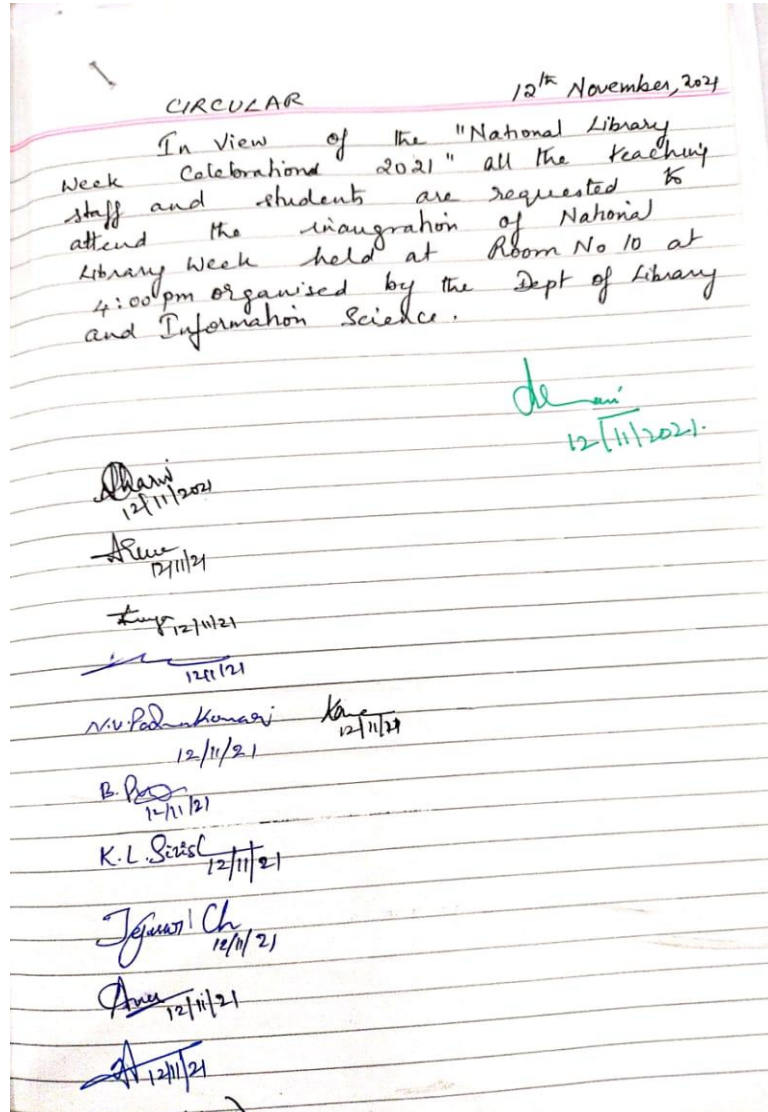 CIRCULAR 12th November, 2021
In View of the "National Library
Week Celebrations 2021" all the teaching
staff and students are requested to
attend the inaugration of National
Library Week held at Room No 10 at
4:00 pm organised by the Dept of Library
and Information Science.
12/11/2021.
12/11/2021
12/11/21
12/11/21
12/11/21
N.V. Padma Kumari
12/11/21
12/11/21
B.
12/11/21
K.L.
12/11/21
Ch
12/11/21
12/11/21
12/11/21